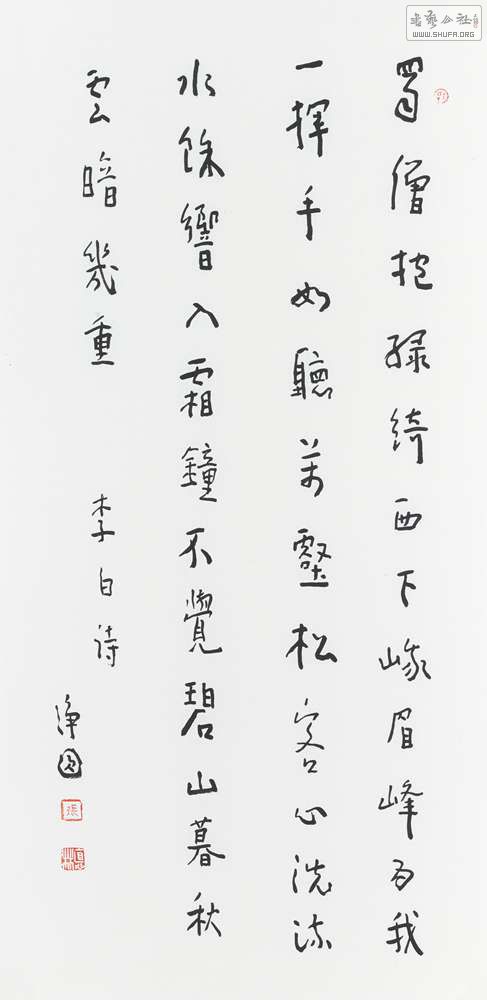 蜀僧抱緑綺西下峨眉峰为我
一揮手如聽萬壑松客心洗流
水餘響入霜鐘不覺碧山暮秋
雲暗幾重
李白诗
張
書藝公社
WWW.SHUFA.ORG